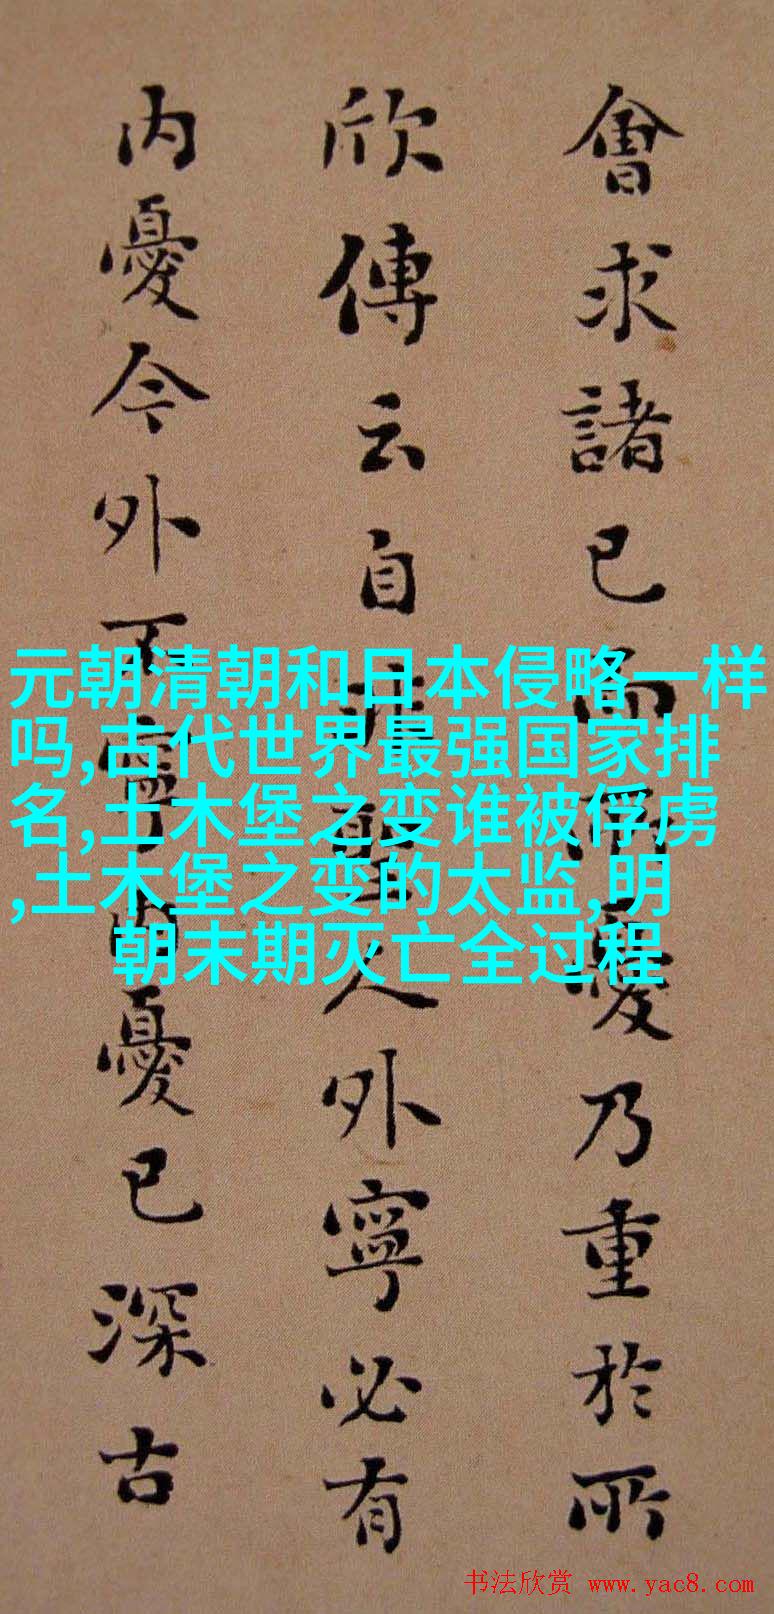 會求諸已而所憂乃重於所
欣傳云自非聖人外寧必有
内憂今外不寧内憂已深古
元朝清朝和日本侵略一样
吗,古代世界最强国家排
名,土木堡之变谁被俘虏
,土木堡之变的太监,明
朝末期灭亡全过程
书法欣赏 www.yac8.com